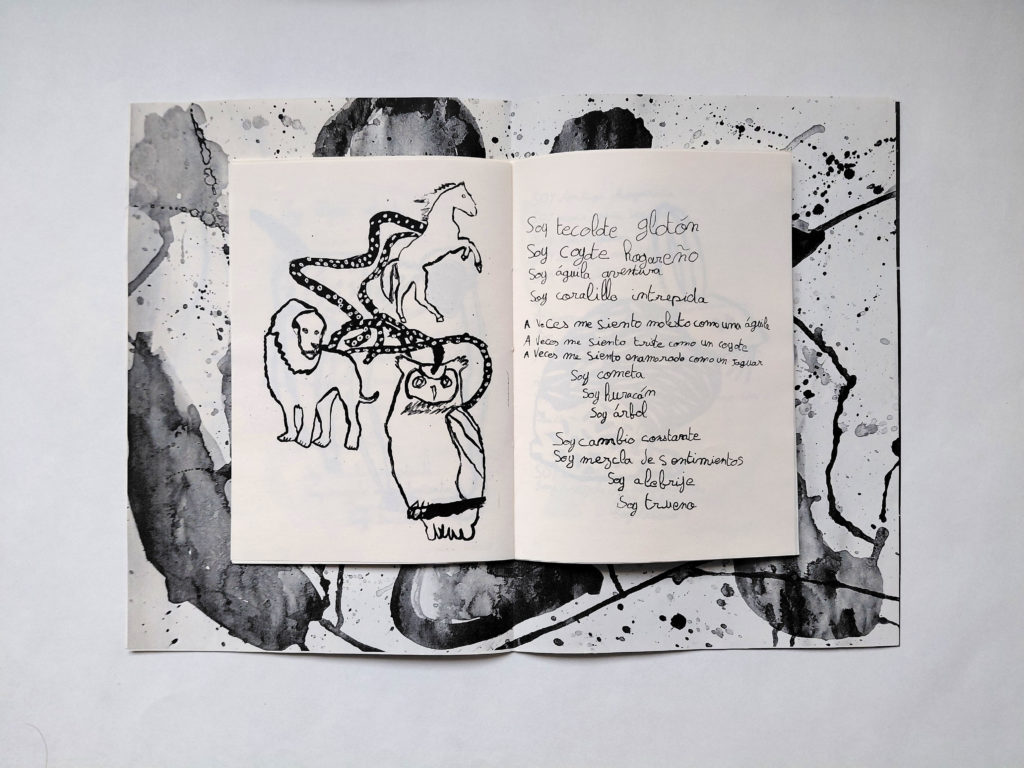 Soy tecolote glotón
Soy coyote hogareño
Soy águila aventura
Soy coralillo intrepida
A veces me siento molisto como una águila
A veces me siento trite como un coyote
A veces me siento enamorado como un jaguar
Soy cometa
Soy huracán
Soy árbol
Soy cambio constante
Soy mezcla de sentimientos
Soy alebrije
Soy trueno